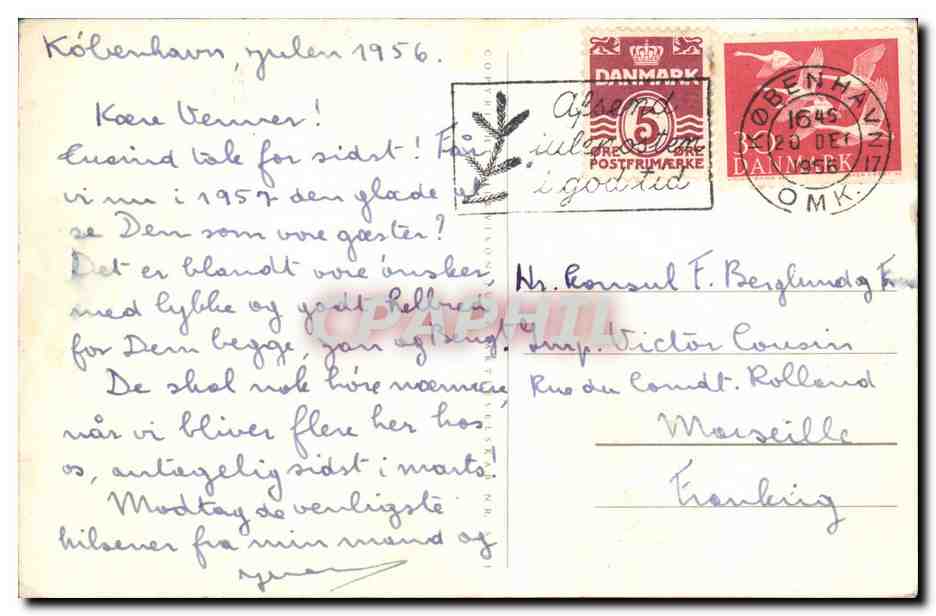 København, julen 1956.
Kære Venner!
tak for sidst! Får
vi nu i 1957 den glæde at
se Dem som vore gæster?
Det er blandt vore ønsker
med lykke og godt helbred
for Dem begge, Jan og Bengt.
De skal nok høre nærmere,
når vi bliver flere her hos
os, antagelig sidst i marts!
Modtag de venligste
hilsener fra min mand og
DANMARK
5
ØRE ØRE
POSTFRIMÆRKE
Afsend
juleposten
i god tid
30
DANMARK
KØBENHAVN
16 45
20 DEC
1956
17
OMK.
Hr. Konsul F. Berglund og Frue
Imp. Victor Cousin
Rue du Comdt. Rolland
Marseille
Frankrig
CPAPHIL